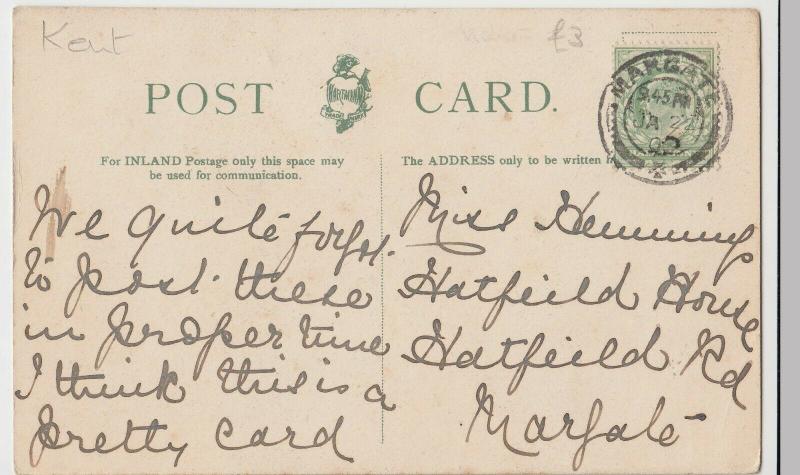 Kent
£3
POST CARD.
HARTMANN
TRADE MARK
MARGATE
9.45 PM
JA 2
For INLAND Postage only this space may
be used for communication.
The ADDRESS only to be written
We quite forgot
to post these
in proper time
I think this is a
pretty card
Miss Hemmings
Hatfield House
Hatfield Rd
Margate